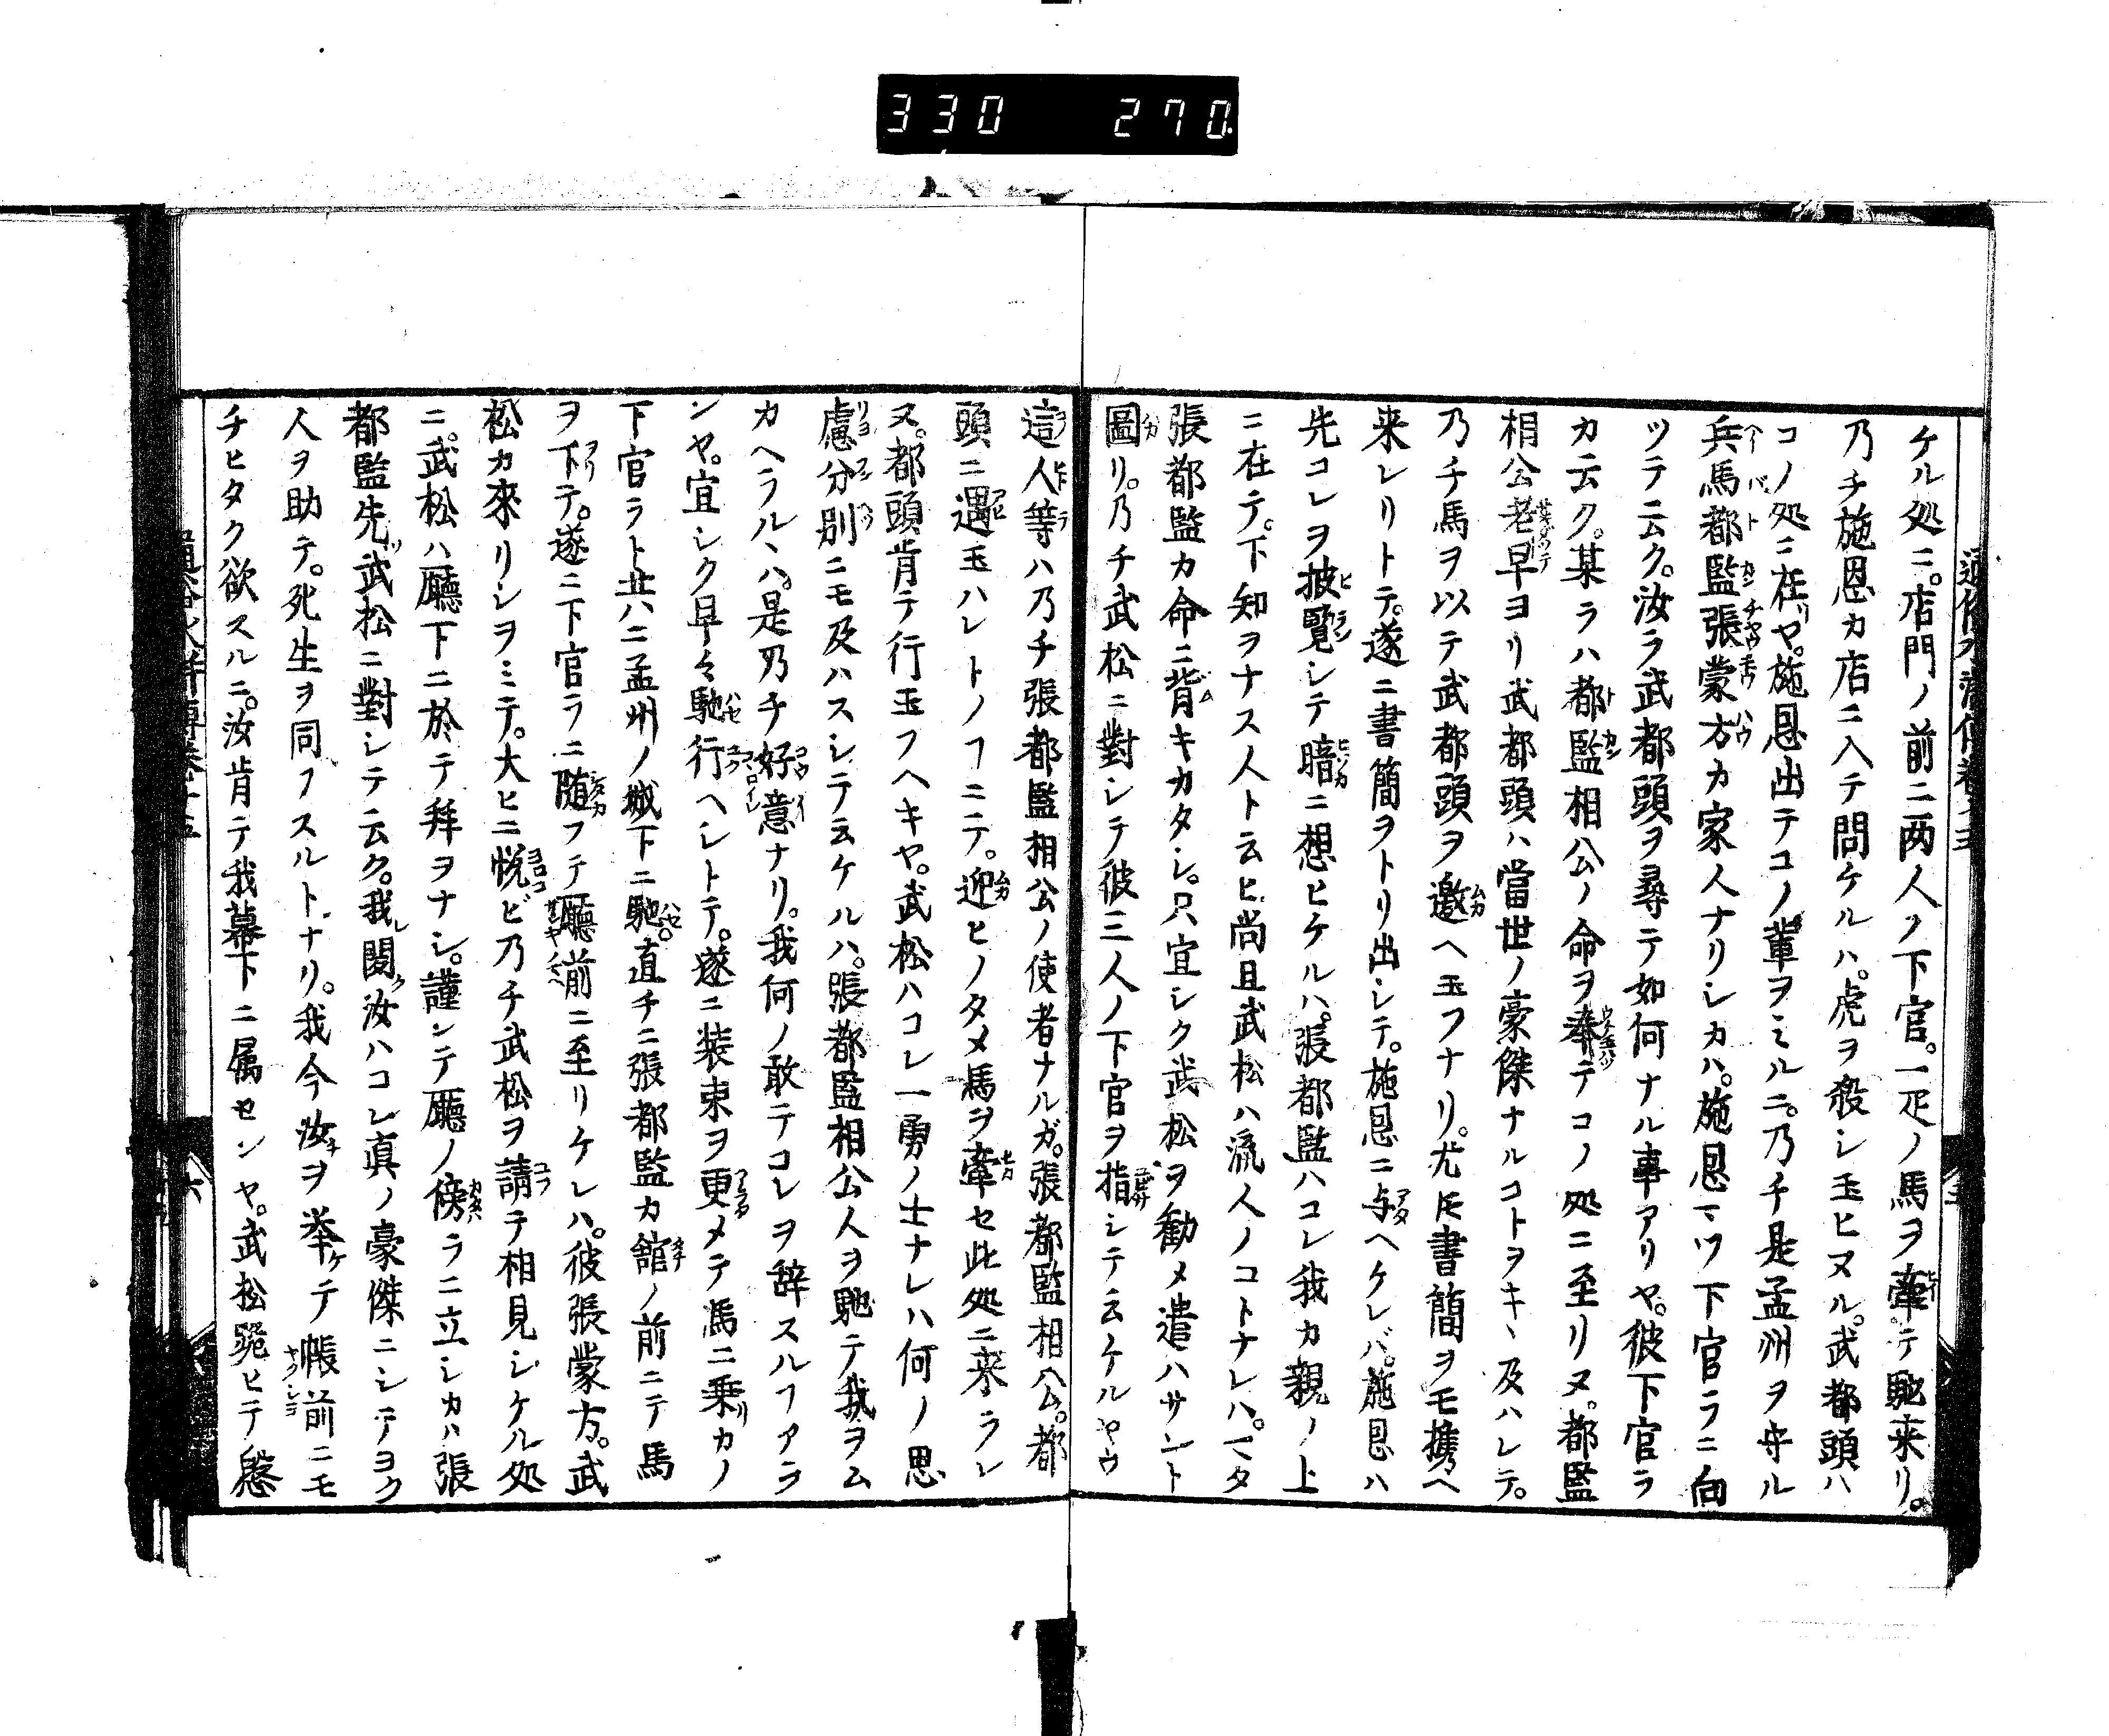 330 270
ケル処ニ。店門ノ前ニ両人ノ下官。一疋ノ馬ヲ牽テ馳来リ。
乃チ施恩カ店ニ入テ問ケルハ。虎ヲ殺シ玉ヒヌル。武都頭ハ
コノ処ニ在ヤ。施恩出テコノ輩ヲミルニ。乃チ是孟州ヲ守ル
兵馬都監張蒙方カ家人ナリシカハ。施恩マツ下官ラニ向
ツテ云ク。汝ラ武都頭ヲ尋テ如何ナル事アリヤ。彼下官ラ
カ云ク。某ラハ都監相公ノ命ヲ奉テコノ処ニ至リヌ。都監
相公老早ヨリ武都頭ハ當世ノ豪傑ナルコトヲキヽ及ハレテ。
乃チ馬ヲ以テ武都頭ヲ邀ヘ玉フナリ。尤𪜈書簡ヲモ携ヘ
来レリトテ。遂ニ書簡ヲトリ出シテ。施恩ニ与ヘケレバ。施恩ハ
先コレヲ披覧シテ暗ニ想ヒケルハ。張都監ハコレ我カ親ノ上
ニ在テ。下知ヲナス人ト云ヒ尚且武松ハ流人ノコトナレハ。マタ
張都監カ命ニ背キカタシ。只宜シク武松ヲ勧メ遣ハサント
圖リ。乃チ武松ニ對シテ彼三人ノ下官ヲ指シテ云ケルヤウ
這人等ハ乃チ張都監相公ノ使者ナルガ。張都監相公。都
頭ニ遇玉ハレトノヿニテ。迎ヒノタメ馬ヲ牽セ此処ニ来ラレ
ヌ。都頭肯テ行玉フヘキヤ。武松ハコレ一勇ノ士ナレハ何ノ思
慮分別ニモ及ハスシテ云ケルハ。張都監相公人ヲ馳テ我ヲム
カヘラルヽハ。是乃チ好意ナリ。我何ノ敢テコレヲ辞スルヿアラ
ンヤ。宜シク早々馳行ヘレトテ。遂ニ装束ヲ更メテ馬ニ乗リカノ
下官ラト共ニ孟州ノ城下ニ馳。直チニ張都監カ舘ノ前ニテ馬
ヲ下テ。遂ニ下官ラニ随フテ廰前ニ至リケレハ。彼張蒙方。武
松カ來リシヲミテ。大ヒニ悦ビ乃チ武松ヲ請テ相見シケル処
ニ。武松ハ廰下ニ於テ拜ヲナシ。謹ンテ廰ノ傍ラニ立シカハ張
都監先武松ニ對シテ云ク。我聞汝ハコレ真ノ豪傑ニシテヨク
人ヲ助テ。死生ヲ同フスルトナリ。我今汝ヲ举テ帳前ニモ
チヒタク欲スルニ。汝肯テ我幕下ニ属センヤ。武松跪ヒテ慇